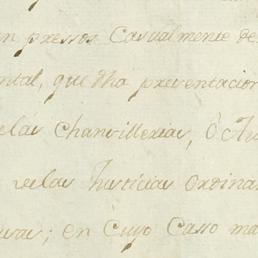 n pressos Casualmente de
ntal, que dha preventacion
elas Chancillerias, ô Au
delas Justicias Ordina
uras; en Cuyo Casso ma